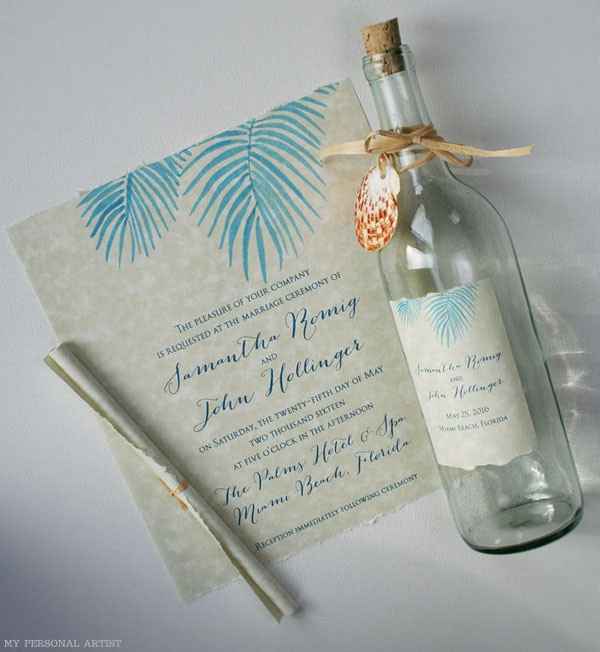 THE PLEASURE OF YOUR COMPANY
IS REQUESTED AT THE MARRIAGE CEREMONY OF
Samantha Romig
AND
John Hollinger
ON SATURDAY, THE TWENTY-FIFTH DAY OF MAY
TWO THOUSAND SIXTEEN
AT FIVE O'CLOCK IN THE AFTERNOON
The Palms Hotel & Spa
Miami Beach, Florida
RECEPTION IMMEDIATELY FOLLOWING CEREMONY
Samantha Romig
AND
John Hollinger
MAY 25, 2016
MIAMI BEACH, FLORIDA
MY PERSONAL ARTIST